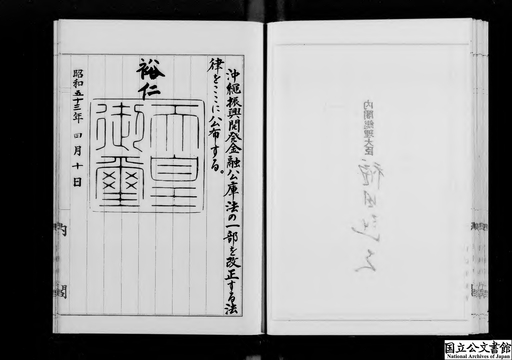 沖縄振興開発金融公庫法の一部を改正する法
律をここに公布する。
裕仁
天皇
御璽
昭和五十三年四月十日
内閣
内閣総理大臣
国立公文書館
National Archives of Japan